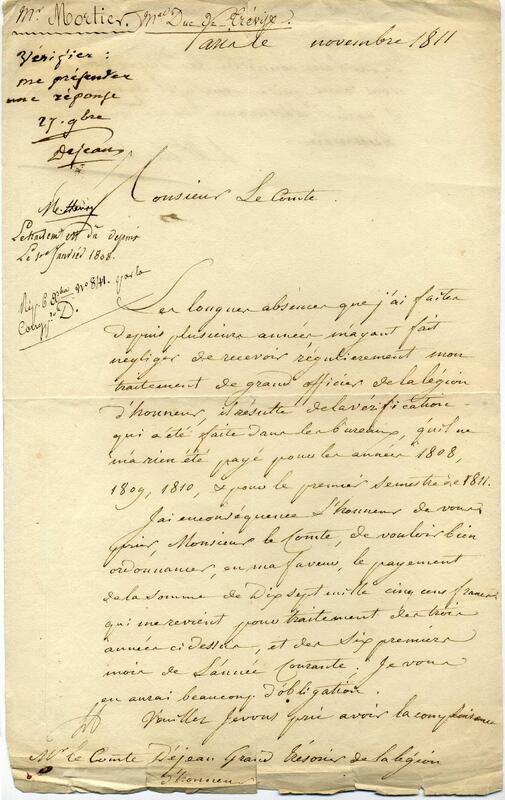 Mr Mortier, Mal Duc de Trévise.
Paris le novembre 1811
Vérifier :
me présenter
une réponse
27. gbre
Dejean
Mr. Henry
Le traitemt est du depuis
Le 1er Janvier 1808.
Rép. 6 Xbre No 841. par la
Corresp. D.
Monsieur Le Comte.
Les longues absences que j'ai faites
depuis plusieurs années m'ayant fait
negliger de recevoir régulierement mon
traitement de grand officier de la légion
d'honneur, il résulte de la vérification
qui a été faite dans les bureaux, qu'il ne
m'a rien été payé pour les années 1808,
1809, 1810, & pour le premier Semestre de 1811.
J'ai en conséquence L'honneur de vous
prier, Monsieur le Comte, de vouloir bien
ordonnancer, en ma faveur, le payement
de la somme de Dix sept mille cinq cens francs
qui me revient pour traitement des trois
années ci dessus, et des Six premiers
mois de L'année Courante. Je vous
en aurai beaucoup d'obligation.
Veuillez Je vous prie avoir la complaisance
Mr. le Comte Déjean Grand Trésorier de la légion
d'honneur